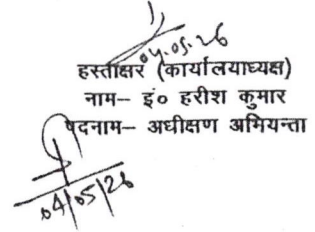 04.05.26
हस्ताक्षर (कार्यालयाध्यक्ष)
नाम– इं० हरीश कुमार
पदनाम– अधीक्षण अभियन्ता
04/05/26